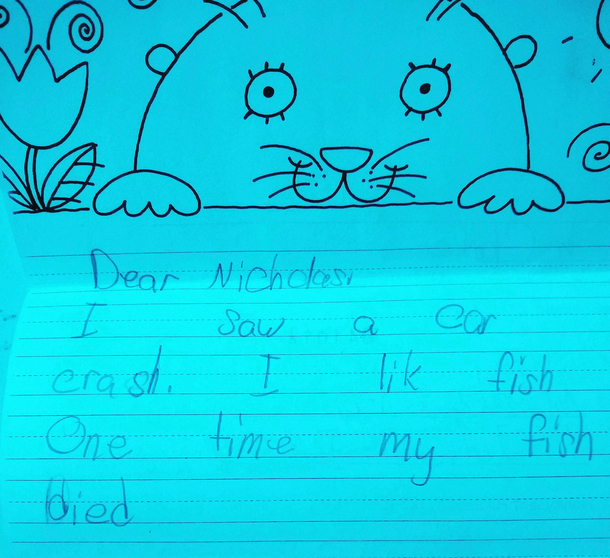 Dear Nicholas,
I saw a car
crash. I lik fish
One time my fish
died